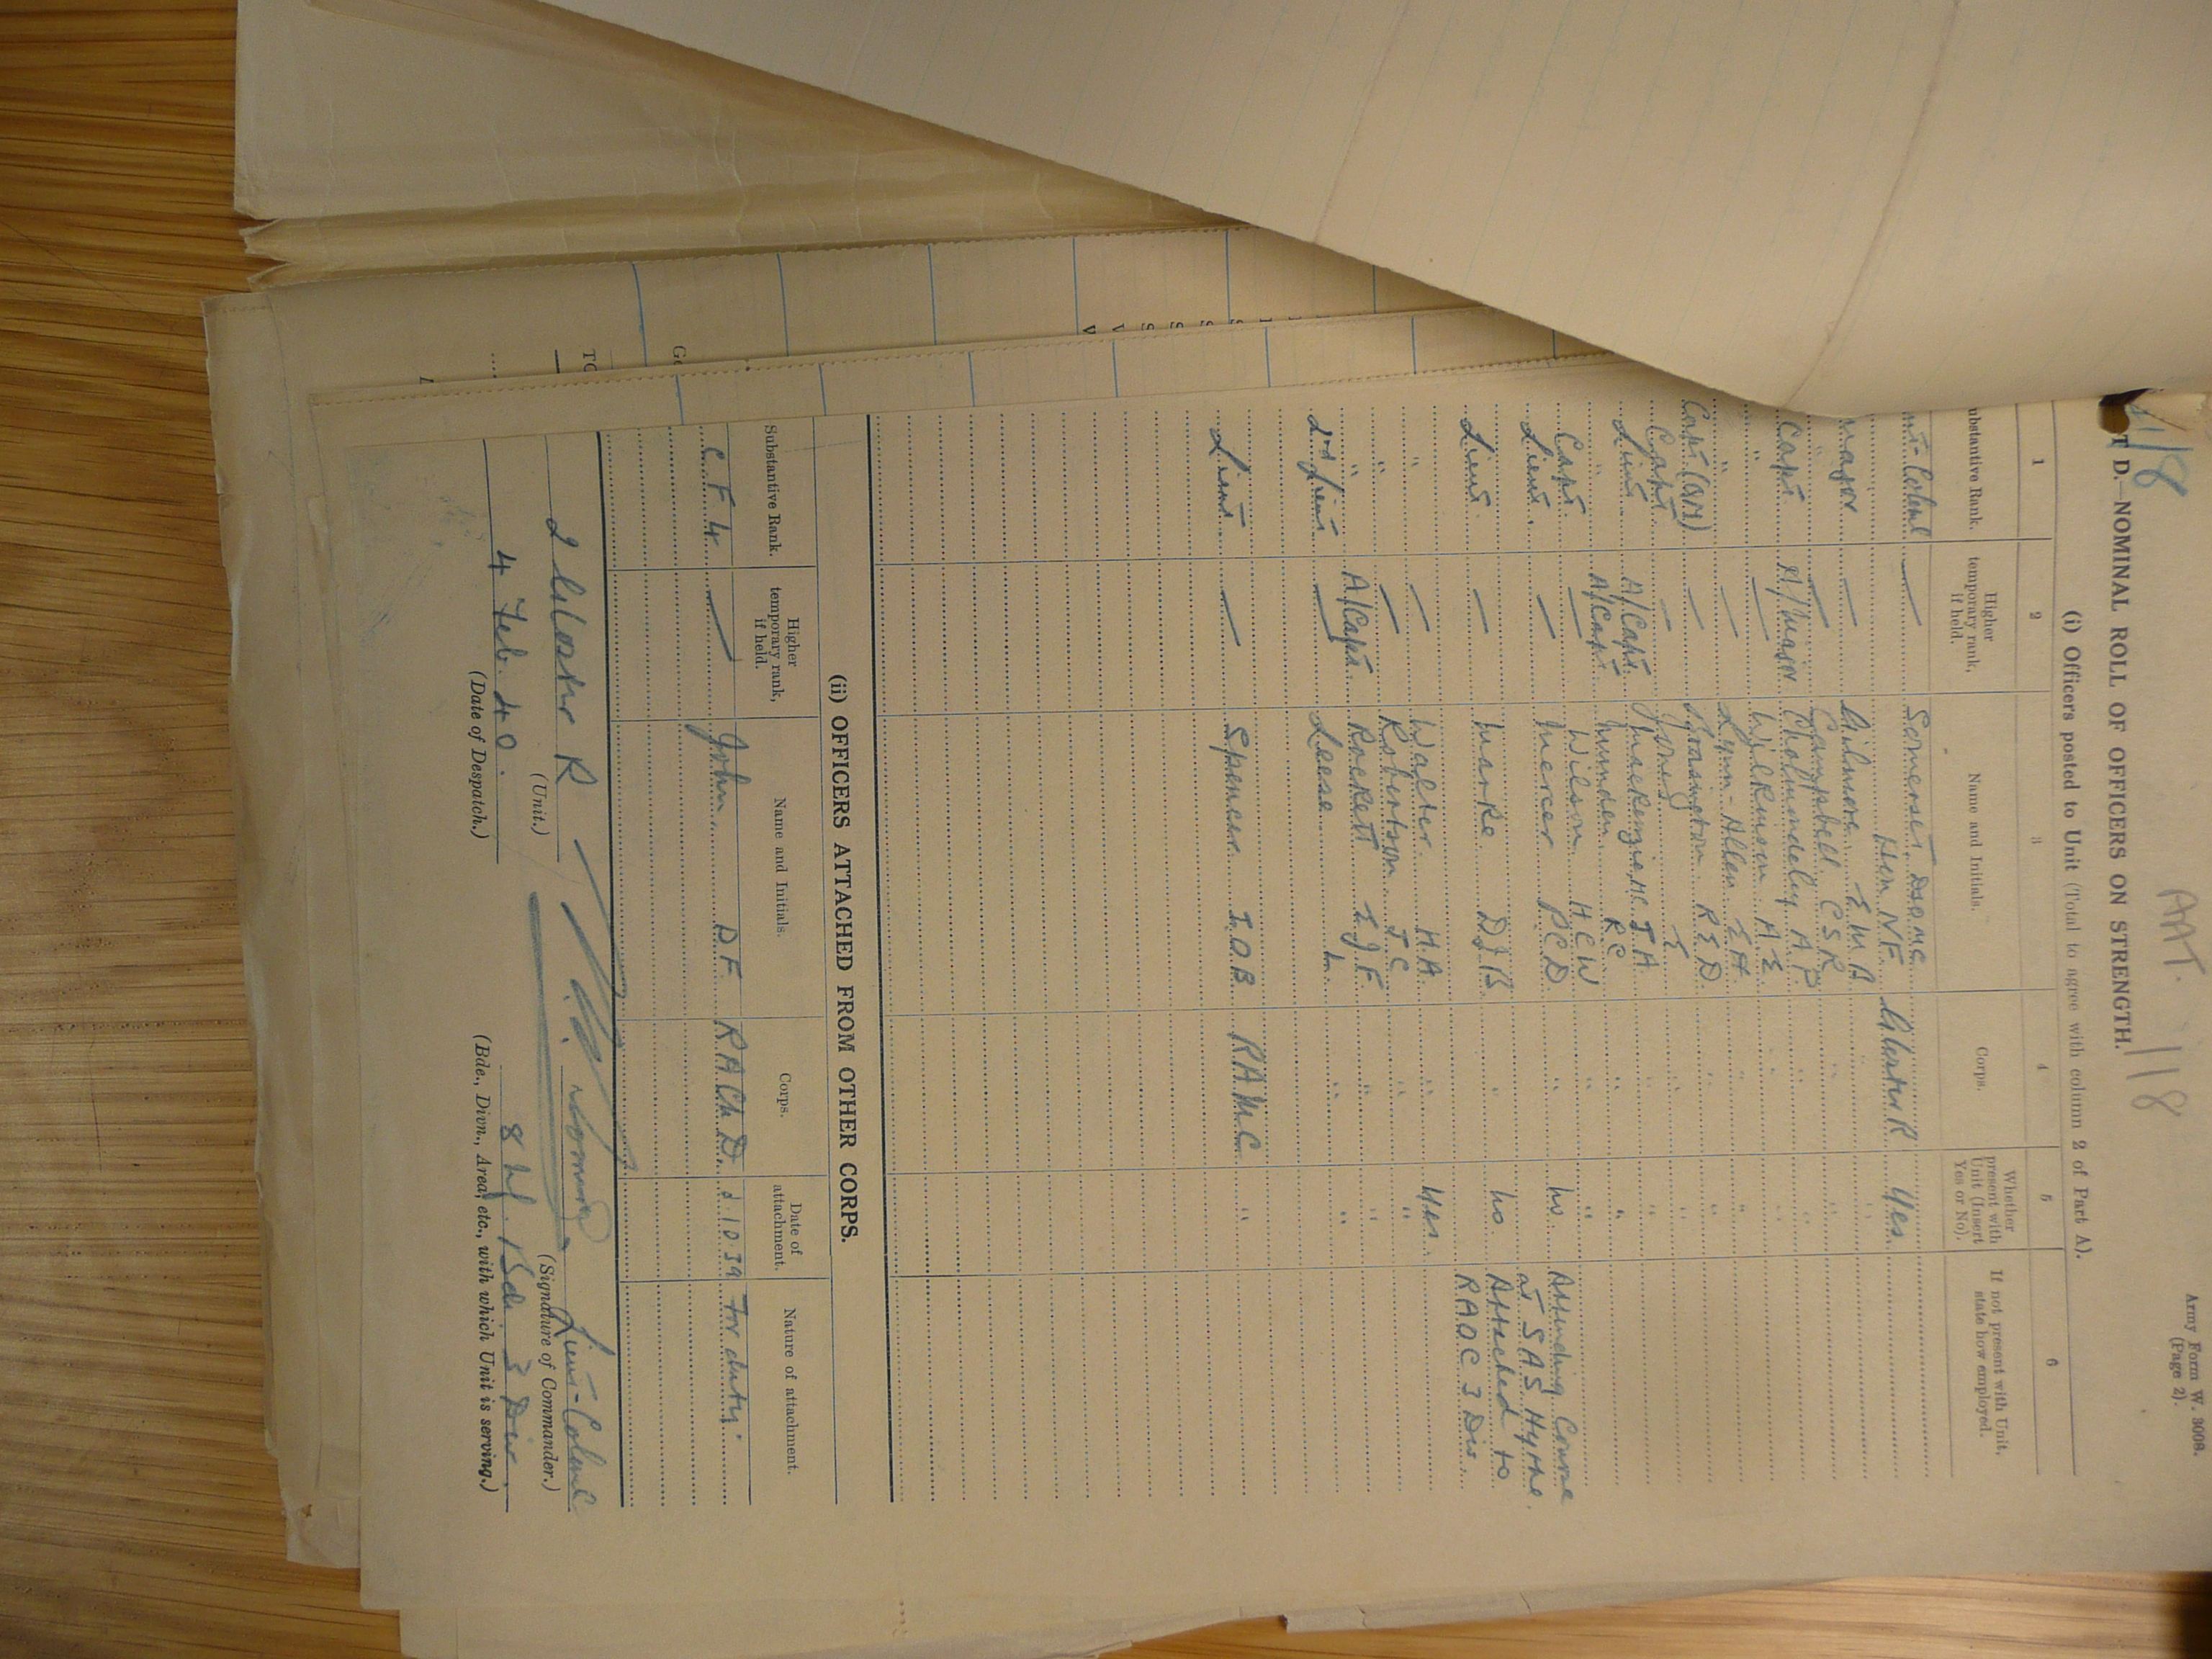 Army Form W. 3008.
(Page 2).
AAT. 118
118
T D.—NOMINAL ROLL OF OFFICERS ON STRENGTH.
(i) Officers posted to Unit (Total to agree with column 2 of Part A).
1 2 3 4 5 6
ubstantive Rank. Higher temporary rank, if held. Name and Initials. Corps. Whether present with Unit (Insert Yes or No). If not present with Unit, state how employed.
Somerset, DSO MC
Hon NF Gloster R Yes
Major — Gilmore EMB " "
" — Campbell CSR " "
Capt A/Major Cholmondeley AP " "
" — Wilkinson AE " "
" — Lynn-Allen EH " "
Capt (QM) — RED " "
Capt — Jones E " "
Lieut A/Capt Mackenzie MC JA " "
" A/Capt Munden RC " "
Capt — Wilson HCW " "
Lieut — Mercer PCD " No Attending Course
at SAS Hythe.
Lieut — DJB " No Attached to
RAOC 3 Div.
" — Walter HA " Yes.
" — Robertson JC " "
" A/Capt Rockett EJF " "
2nd Lieut — Leese L " "
Lieut — Spencer JOB RAMC "
(ii) OFFICERS ATTACHED FROM OTHER CORPS.
Substantive Rank. Higher temporary rank, if held. Name and Initials. Corps. Date of attachment. Nature of attachment.
C.F. 4 — John DF RAChD 10 39 For duty.
2 Gloster R Lieut-Colonel
(Unit.) (Signature of Commander.)
4 Feb. 40. 8 Inf. Bde. 3 Div.
(Date of Despatch.) (Bde., Divn., Area, etc., with which Unit is serving.)